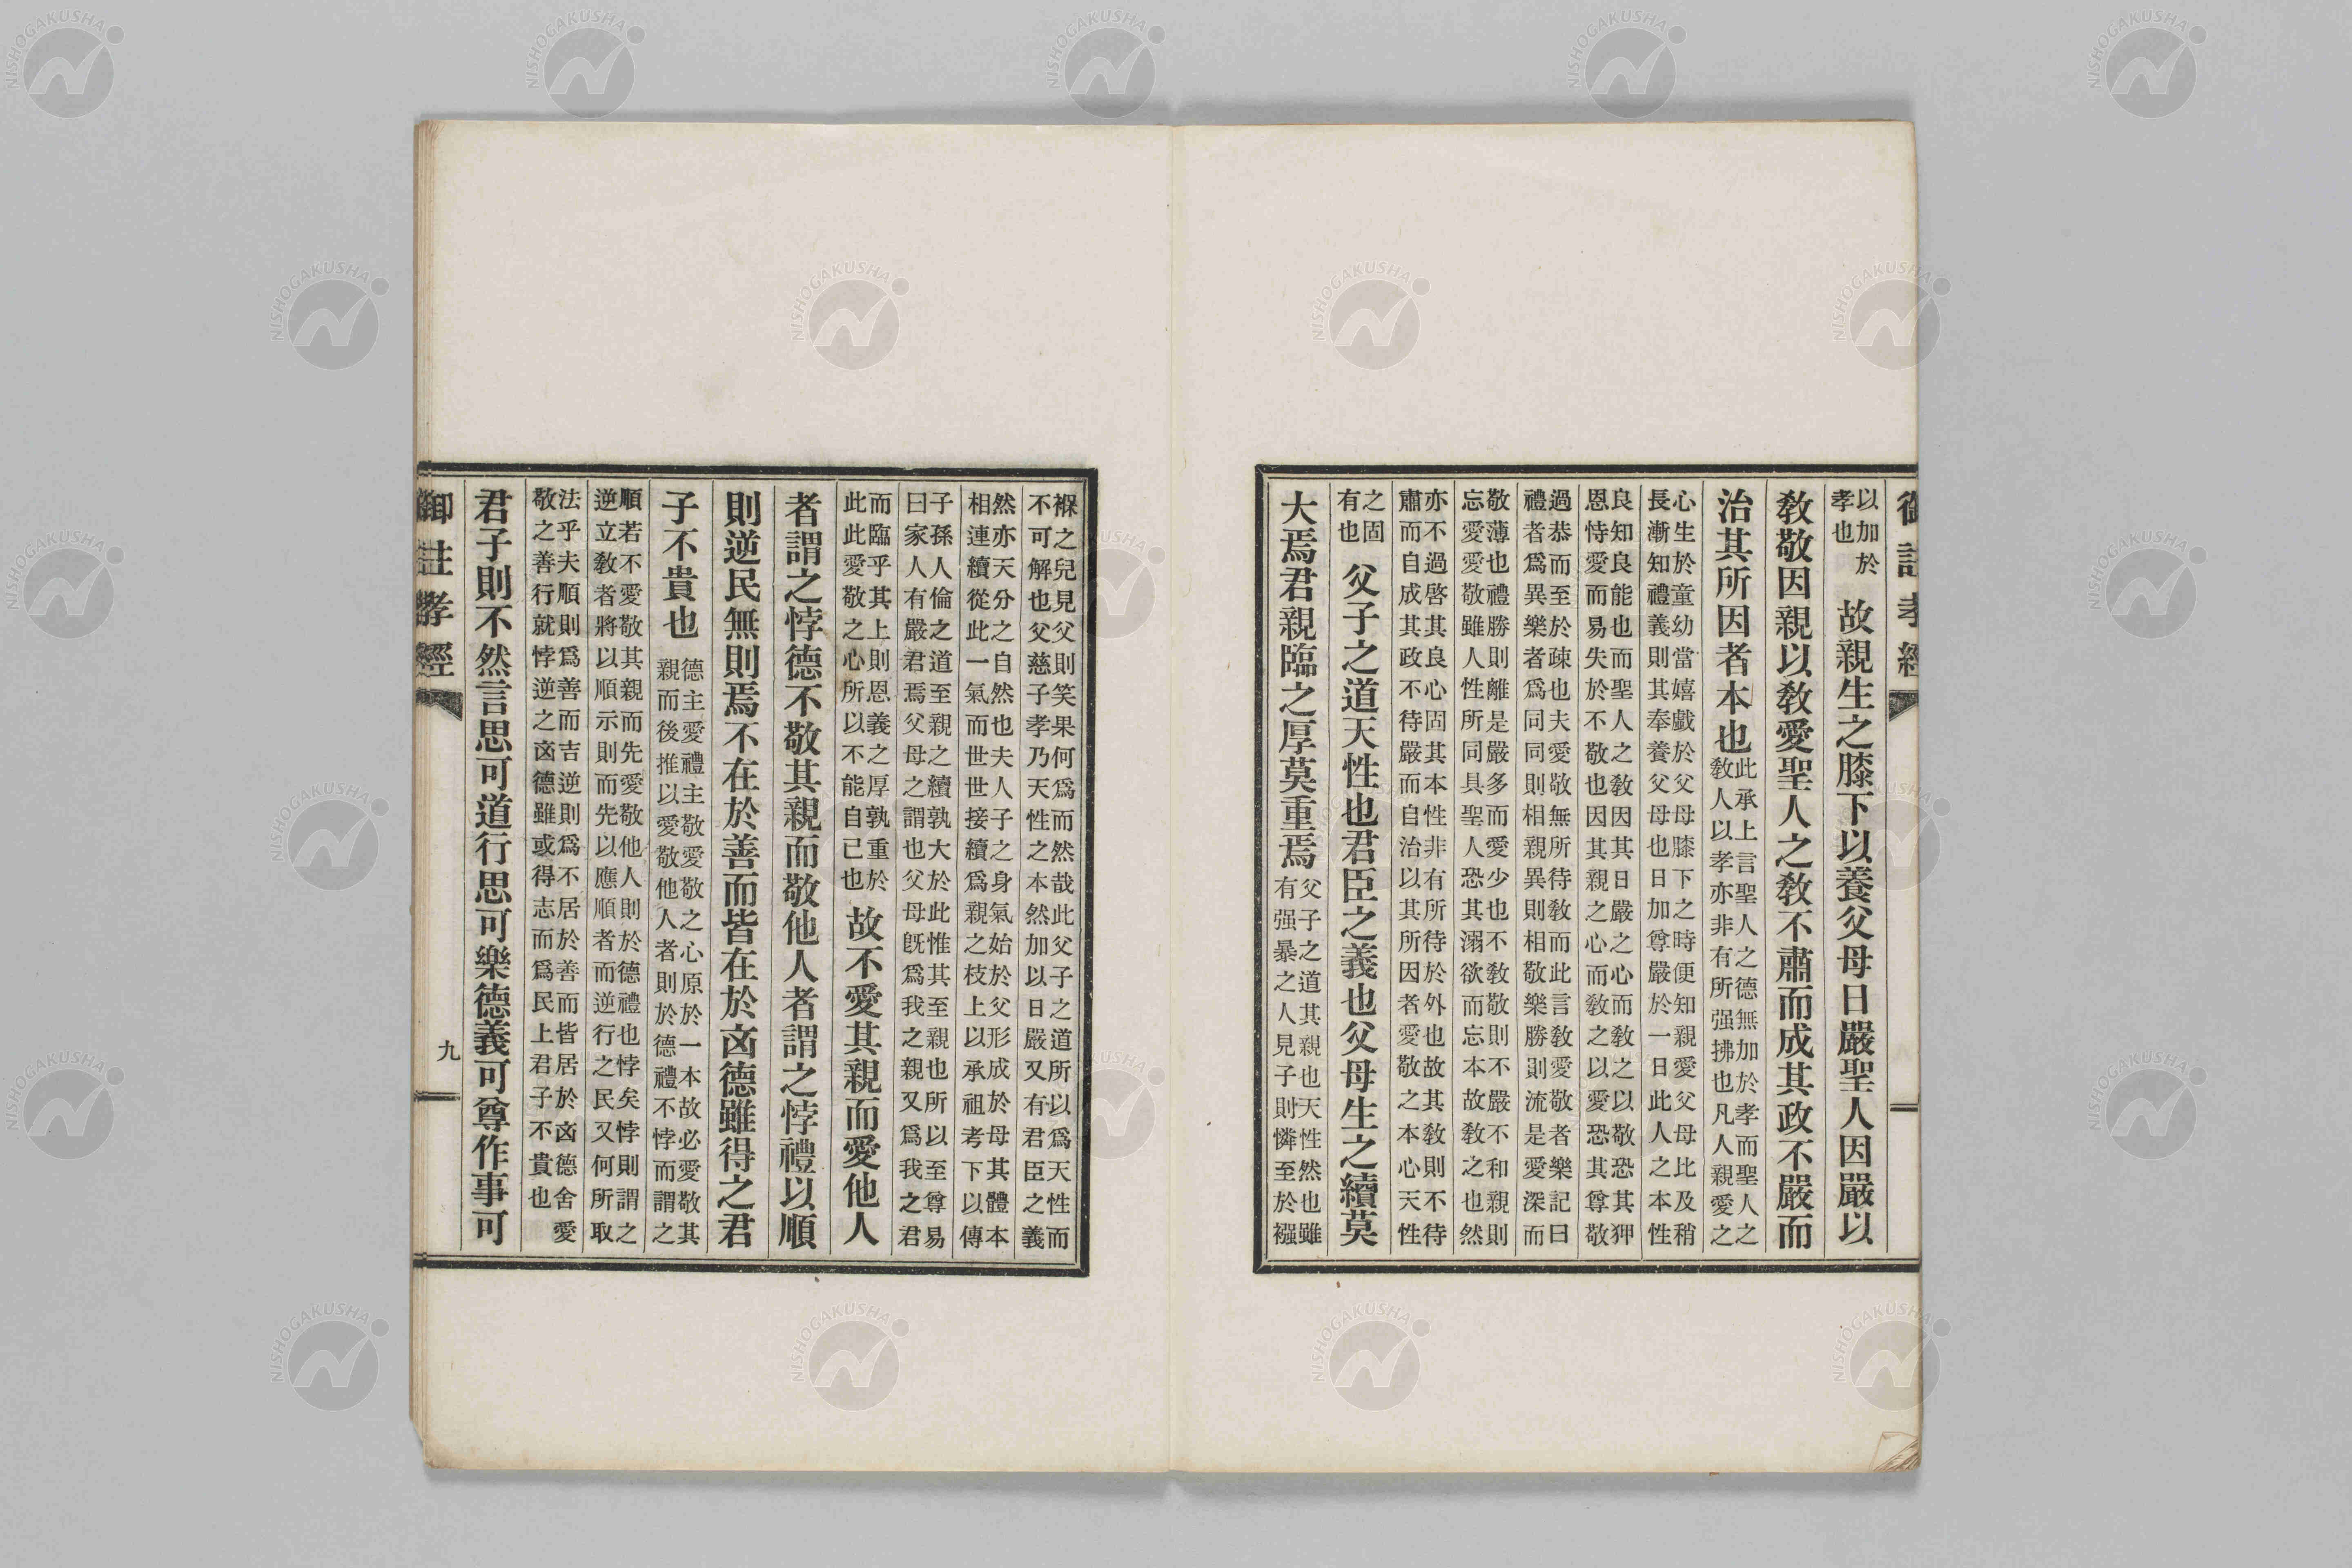 御註孝經
以加於
孝也
故親生之膝下以養父母日嚴聖人因嚴以
敎敬因親以敎愛聖人之敎不肅而成其政不嚴而
治其所因者本也
此承上言聖人之德無加於孝而聖人之
敎人以孝亦非有所强拂也凡人親愛之
心生於童幼當嬉戲於父母膝下之時便知親愛父母比及稍
長漸知禮義則其奉養父母也日加尊嚴於一日此人之本性
良知良能也而聖人之敎因其日嚴之心而敎之以敬恐其狎
恩恃愛而易失於不敬也因其親之心而敎之以愛恐其尊敬
過恭而至於疎也夫愛敬無所待敎而此言敎愛敬者樂記曰
禮者爲異樂者爲同同則相親異則相敬樂勝則流是愛深而
敬薄也禮勝則離是嚴多而愛少也不敎敬則不嚴不和親則
忘愛愛敬雖人性所同具聖人恐其溺欲而忘本故敎之也然
亦不過啓其良心固其本性非有所待於外也故其敎則不待
肅而自成其政不待嚴而自治以其所因者愛敬之本心天性
之固
有也
父子之道天性也君臣之義也父母生之續莫
大焉君親臨之厚莫重焉
父子之道其親也天性然也雖
有强暴之人見子則憐至於襁
褓之兒見父則笑果何爲而然哉此父子之道所以爲天性而
不可解也父慈子孝乃天性之本然加以日嚴又有君臣之義
然亦天分之自然也夫人子之身氣始於父形成於母其體本
相連續從此一氣而世世接續爲親之枝上以承祖考下以傳
子孫人倫之道至親之續孰大於此惟其至親也所以至尊易
曰家人有嚴君焉父母之謂也父母旣爲我之親又爲我之君
而臨乎其上則恩義之厚孰重於
此此愛敬之心所以不能自已也
故不愛其親而愛他人
者謂之悖德不敬其親而敬他人者謂之悖禮以順
則逆民無則焉不在於善而皆在於凶德雖得之君
子不貴也
德主愛禮主敬愛敬之心原於一本故必愛敬其
親而後推以愛敬他人者則於德禮不悖而謂之
順若不愛敬其親而先愛敬他人則於德禮也悖矣悖則謂之
逆立敎者將以順示則而先以應順者而逆行之民又何所取
法乎夫順則爲善而吉逆則爲不居於善而皆居於凶德舍愛
敬之善行就悖逆之凶德雖或得志而爲民上君子不貴也
君子則不然言思可道行思可樂德義可尊作事可
御註孝經
九
NISHOGAKUSHA